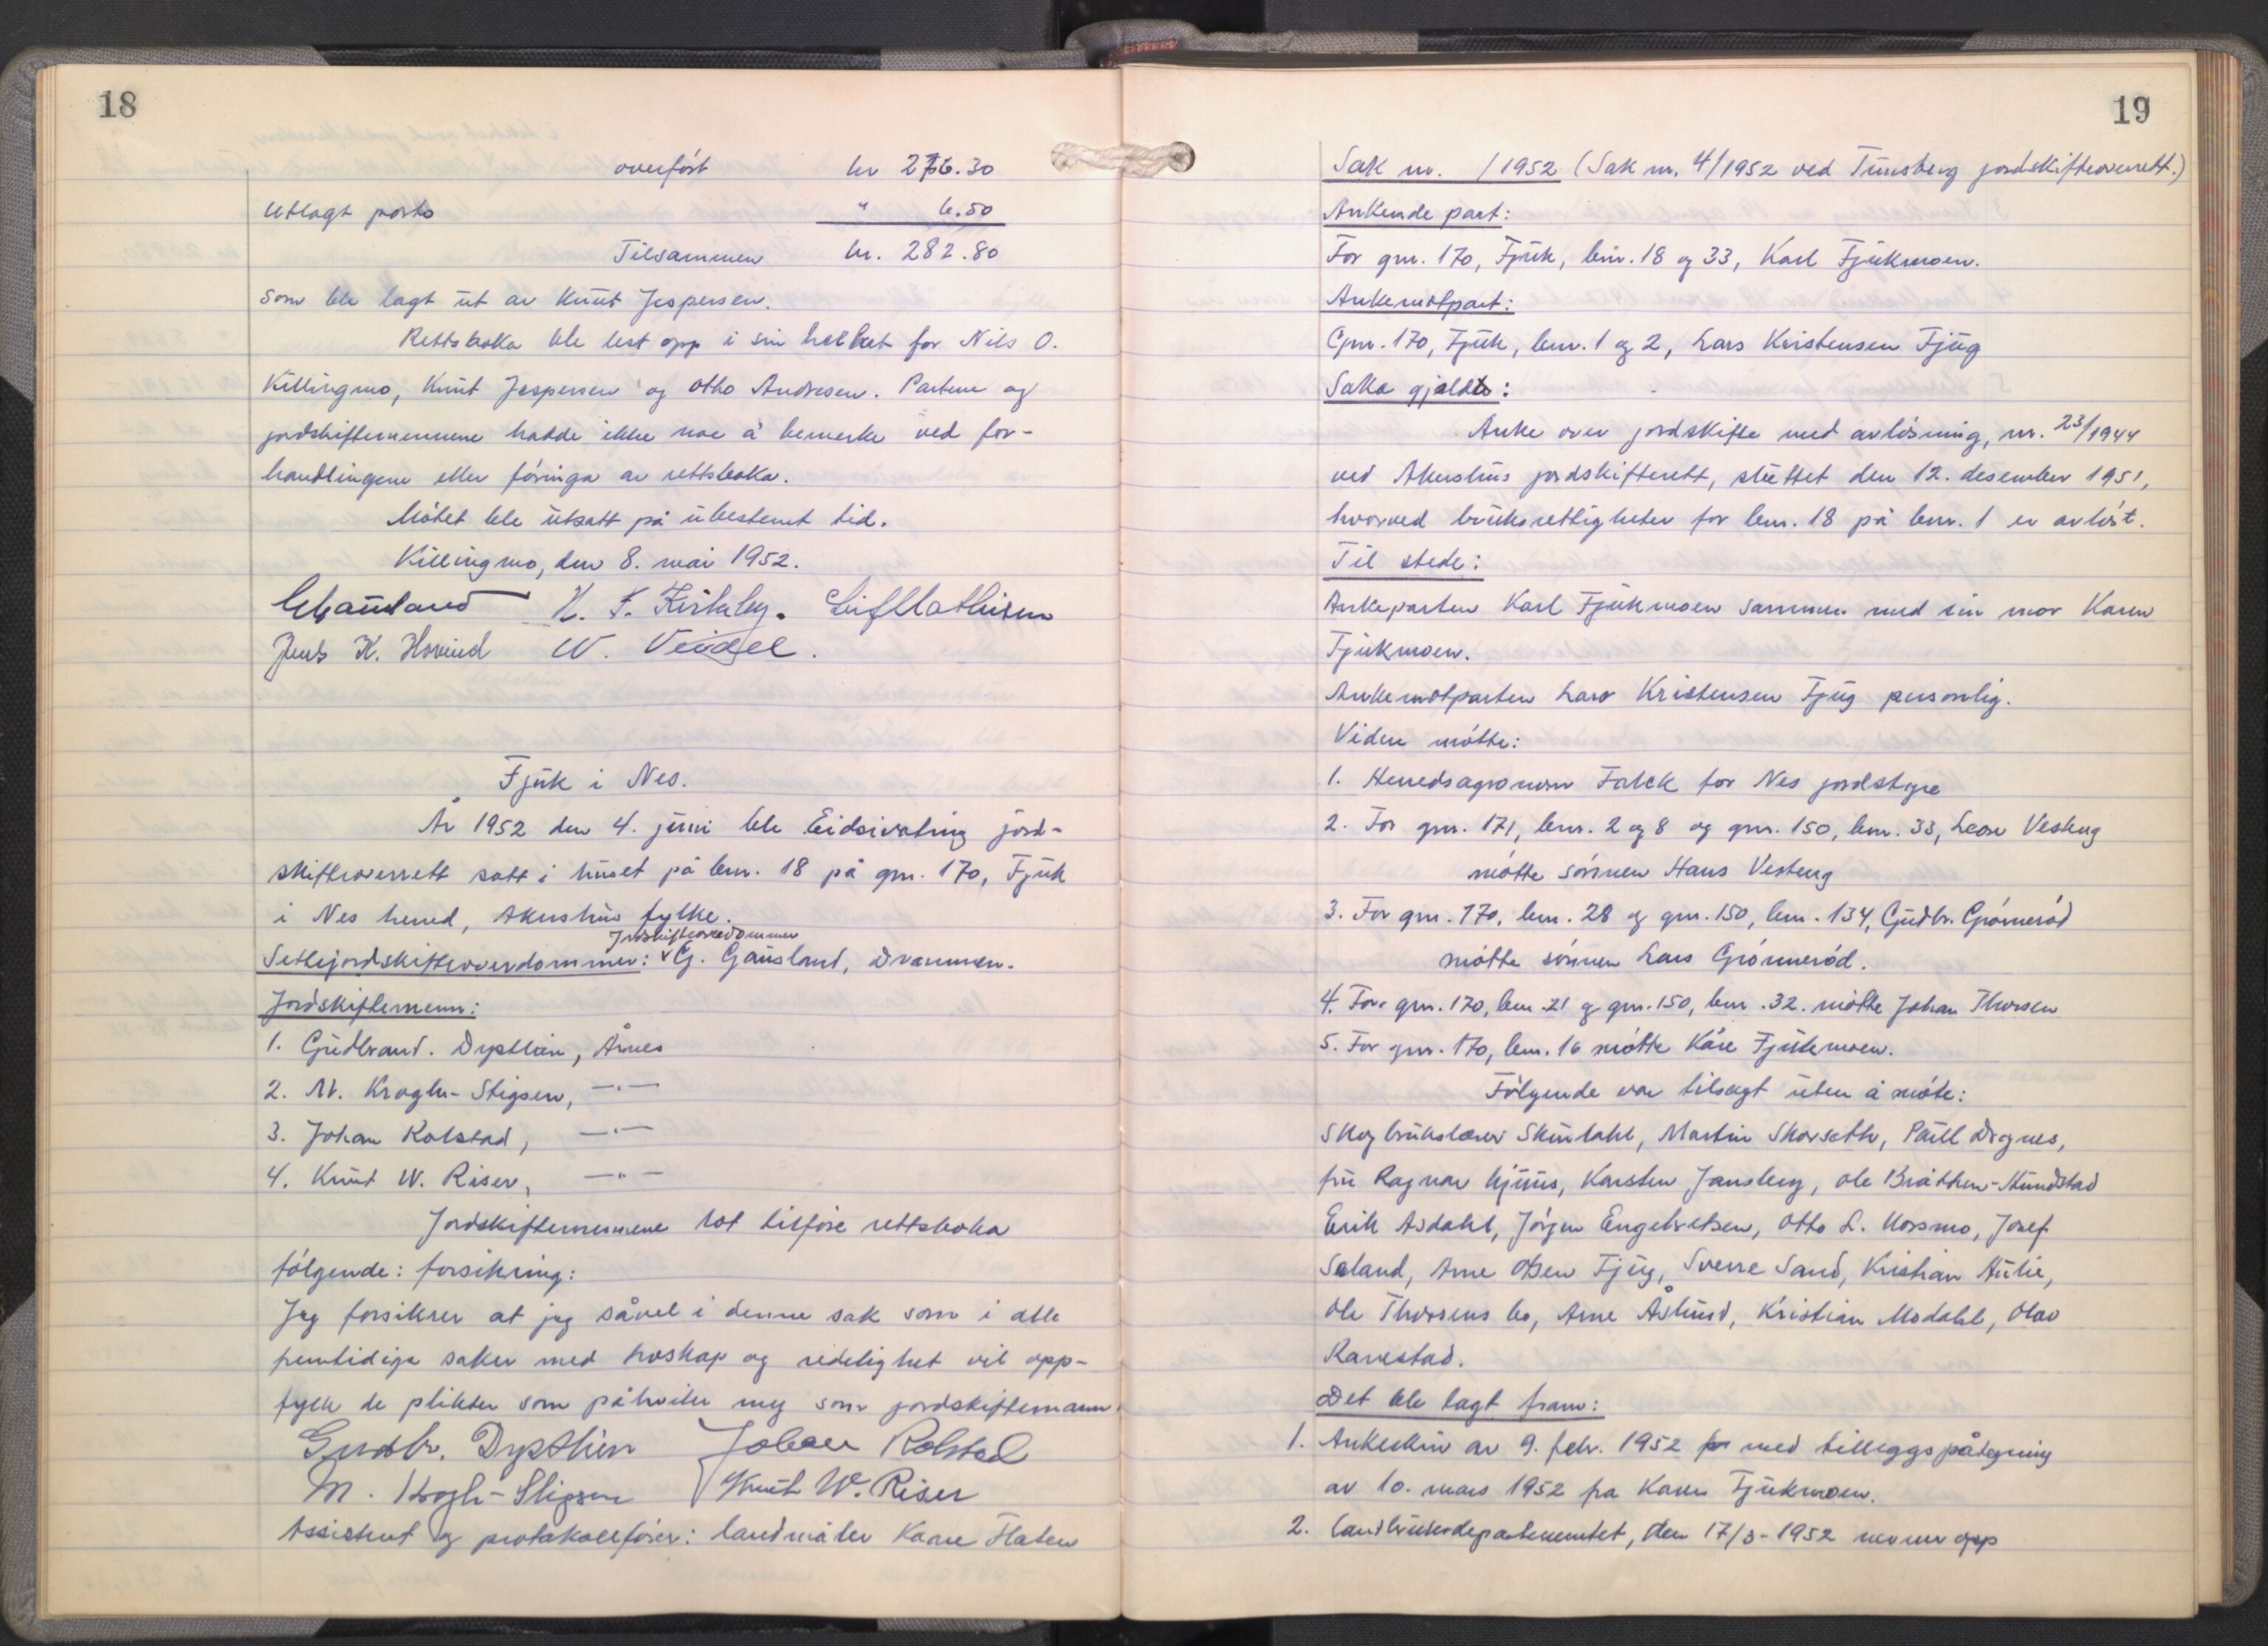 18
overført kr 276.30
Utlagt porto " 6.50
Tilsammen kr. 282.80
som ble lagt ut av Knut Jespersen.
Rettsboka ble lest opp i sin helhet for Nils O.
Killingmo, Knut Jespersen og Otto Andresen. Partene og
jordskiftemennene hadde ikke noe å bemerke ved for-
handlingene eller føringa av rettsboka.
Møtet ble utsatt på ubestemt tid.
Killingmo, den 8. mai 1952.
GGausland K. F. Kirkeby. Leif Mathisen
Jens K. Hovind W. Veidel.
Fjuk i Nes.
År 1952 den 4. juni ble Eidsivating jord-
skifteoverrett satt i huset på bnr. 18 på gnr. 170, Fjuk
i Nes herred, Akershus fylke.
Jordskifteoverdommer
Settejordskifteoverdommer: G. Gausland, Drammen.
Jordskiftemenn:
1. Gudbrand. Dysthien, Årnes
2. M. Krogh-Stigsen, —"—
3. Johan Rolstad, —"—
4. Knut W. Riser, —"—
Jordskiftemennene lot tilføre rettsboka
følgende: forsikring:
Jeg forsikrer at jeg såvel i denne sak som i alle
fremtidige saker med troskap og redelighet vil opp-
fylle de plikter som påhviler meg som jordskiftemann.
Gudbr. Dysthien Johan Rolstad
M. Krogh-Stigsen Knut W. Riser
Assistent og protokollfører: landmåler Kaare Flaten
19
Sak nr. /1952 (Sak nr. 4/1952 ved Tunsberg jordskifteoverrett.)
Ankende part:
For gnr. 170, Fjuk, bnr. 18 og 33, Karl Fjukmoen.
Ankemotpart:
Gnr. 170, Fjuk, bnr. 1 og 2, Lars Kristensen Fjug
Saka gjeldt:
Anke over jordskifte med avløsning, nr. 23/1944
ved Akershus jordskifterett, sluttet den 12. desember 1951,
hvorved bruksrettigheter for bnr. 18 på bnr. 1 er avløst.
Til stede:
Ankeparten Karl Fjukmoen sammen med sin mor Karen
Fjukmoen.
Ankemotparten Lars Kristensen Fjug personlig.
Videre møtte:
1. Herredsagronom Falck for Nes jordstyre
2. For gnr. 171, bnr. 2 og 8 og gnr. 150, bnr. 33, Leon Vesteng
møtte sønnen Hans Vesteng
3. For gnr. 170, bnr. 28 og gnr. 150, bnr. 134, Gudbr. Grønnerød
møtte sønnen Lars Grønnerød.
4. For gnr. 170, bnr. 21 og gnr. 150, bnr. 32. møtte Johan Thorsen
5. For gnr. 170, bnr. 16 møtte Kåre Fjukmoen.
Følgende var tilsagt uten å møte:
Skogbrukslærer Skindahl, Martin Skorseth, Paul Dragnes,
fru Ragnar Hjuus, Karsten Jansberg, Ole Bråthen-Hundstad
Erik Asdahl, Jørgen Engebretsen, Otto L. Korsmo, Josef
Saland, Arne Olsen Fjug, Sverre Sand, Kristian Hulie,
Ole Thorsens bo, Arne Åslund, Kristian Modahl, Olav
Ranestad.
Det ble lagt fram:
1. Ankeskriv av 9. febr. 1952 med tilleggspåtegning
av 10. mars 1952 fra Karen Fjukmoen.
2. Landbruksdepartementet, den 17/3-1952 nevner opp